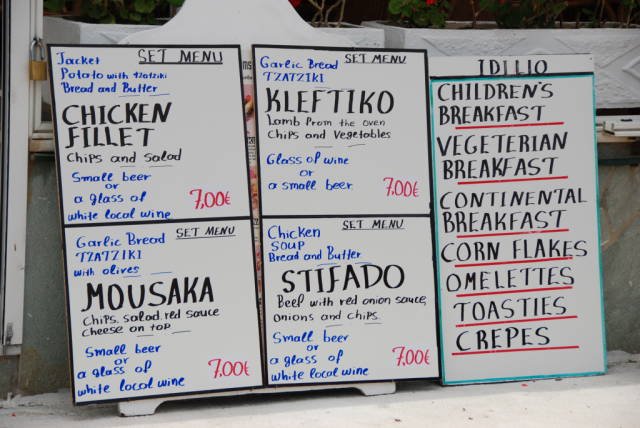 Jacket SET MENU
Potato with Tzatziki
Bread and Butter
CHICKEN
FILLET
Chips and salad
Small beer
or
a glass of
white local wine
7,00€
Garlic Bread SET MENU
TZATZIKI
KLEFTIKO
Lamb from the oven
Chips and Vegetables
Glass of wine
or
a small beer
7,00€
Garlic Bread SET MENU
TZATZIKI
with olives
MOUSAKA
Chips. salad. red sauce
cheese on top
Small beer
or
a glass of
white local wine
7,00€
Chicken SET MENU
SOUP
Bread and Butter
STIFADO
Beef with red onion sauce,
onions and chips
Small beer
or
a glass of
white local wine
7,00€
IDILIO
CHILDREN'S
BREAKFAST
VEGETERIAN
BREAKFAST
CONTINENTAL
BREAKFAST
CORN FLAKES
OMELETTES
TOASTIES
CREPES